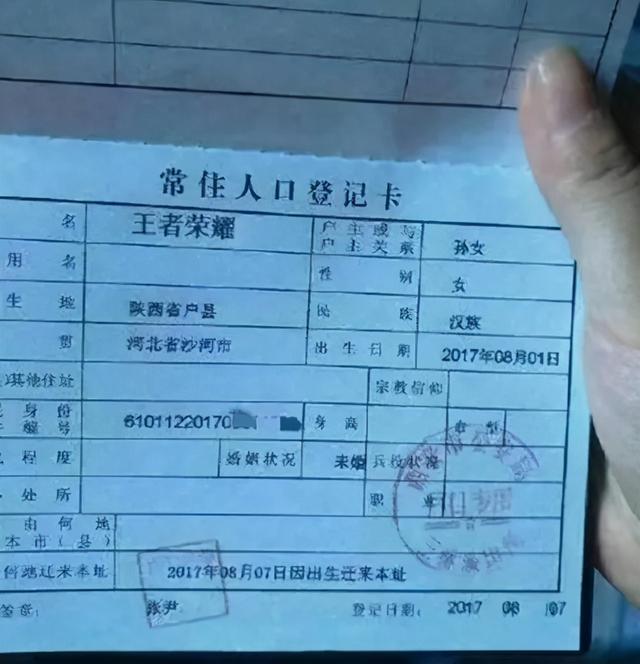 常住人口登记卡
名 王者荣耀 户主或与户主关系 孙女
用名 性别 女
生地 陕西省户县 民族 汉族
贯 河北省沙河市 出生日期 2017年08月01日
其他住址 宗教信仰
身份 61011220170 身高 血型
程度 婚姻状况 未婚 兵役状况
处所 职业
由何地
本市(县)
何地迁来本址 2017年08月07日因出生迁来本址
签章: 张尹 登记日期: 2017 08 07